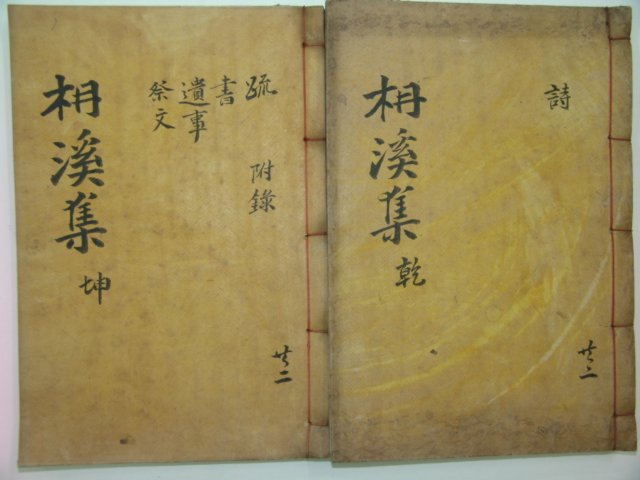 枏溪集 乾
詩
共二
枏溪集 坤
疏
書
遺事
祭文
附錄
共二